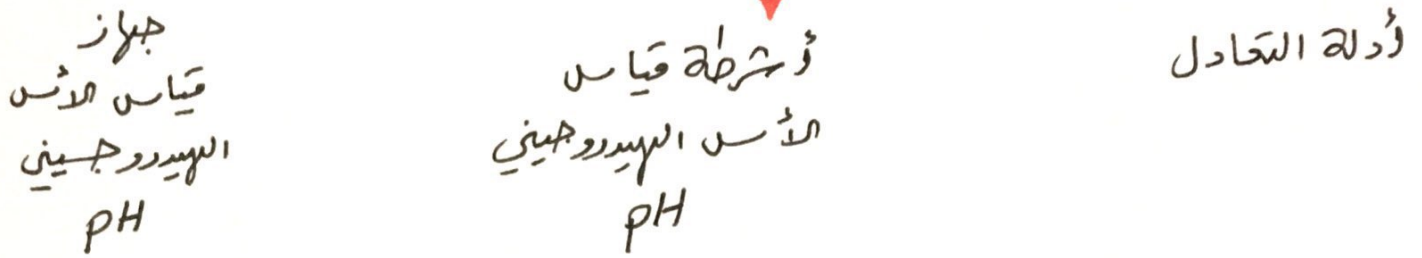 أدلة التعادل
أشرطة قياس
الأس الهيدروجيني
pH
جهاز
قياس الأس
الهيدروجيني
pH